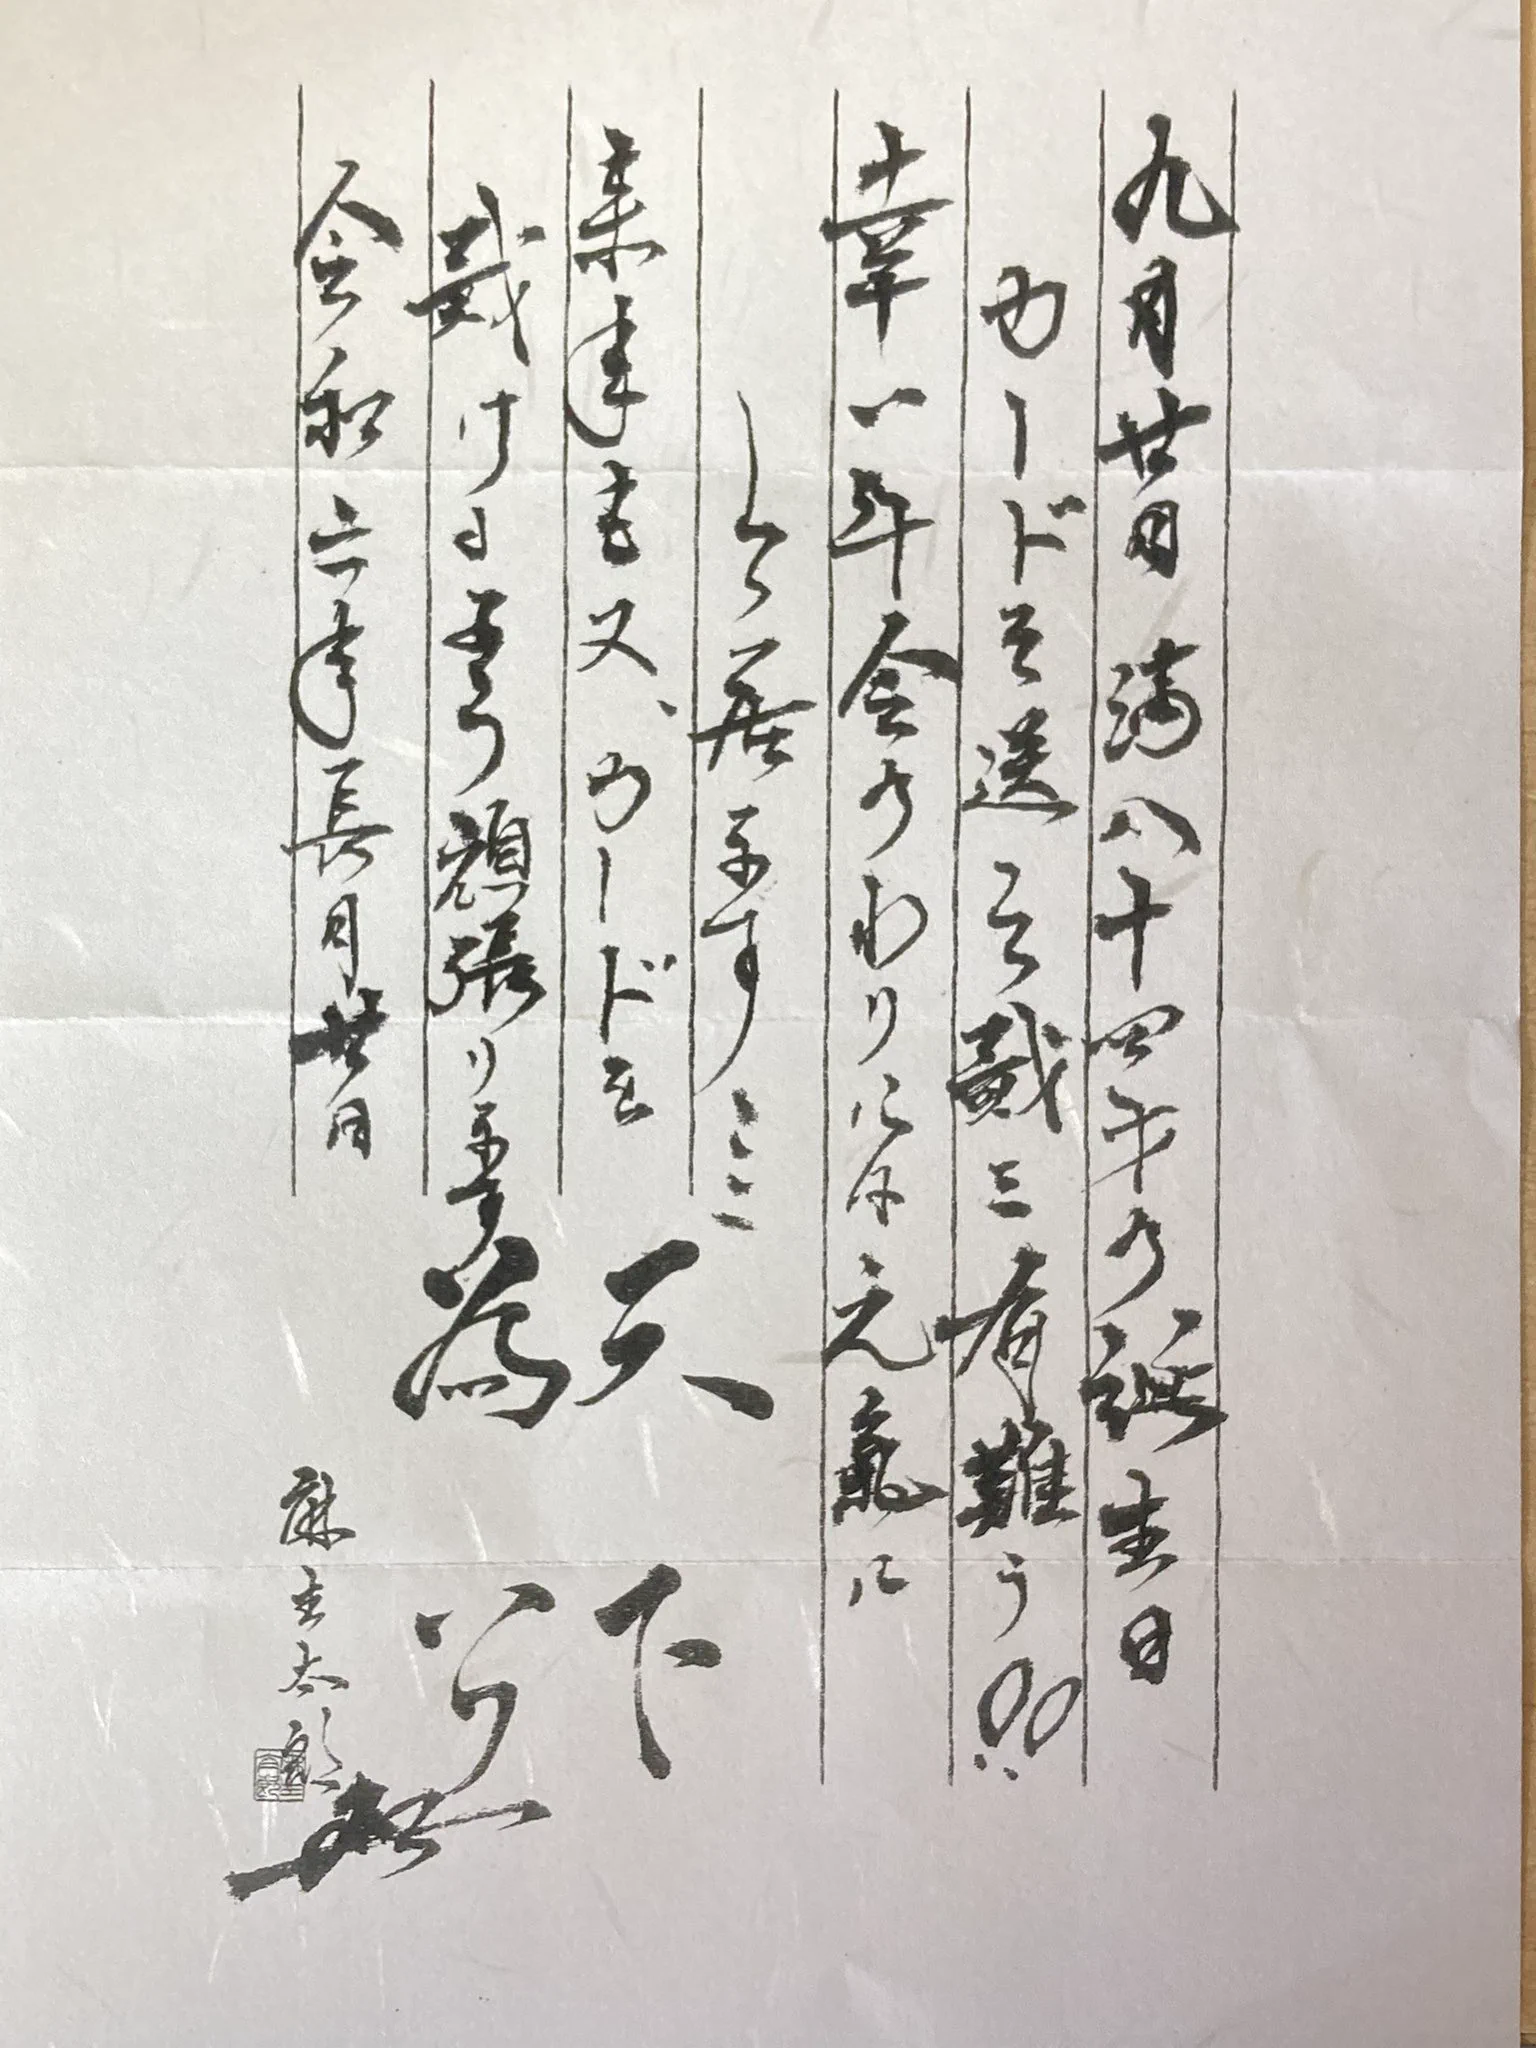 九月廿日 満八十四才の誕生日
カードを送って戴き有難う!!
幸い年令のわりには元氣に
して居ります
来年も又、カードを
戴けるよう頑張ります
令和六年長月廿日
天下
為公
麻生太郎